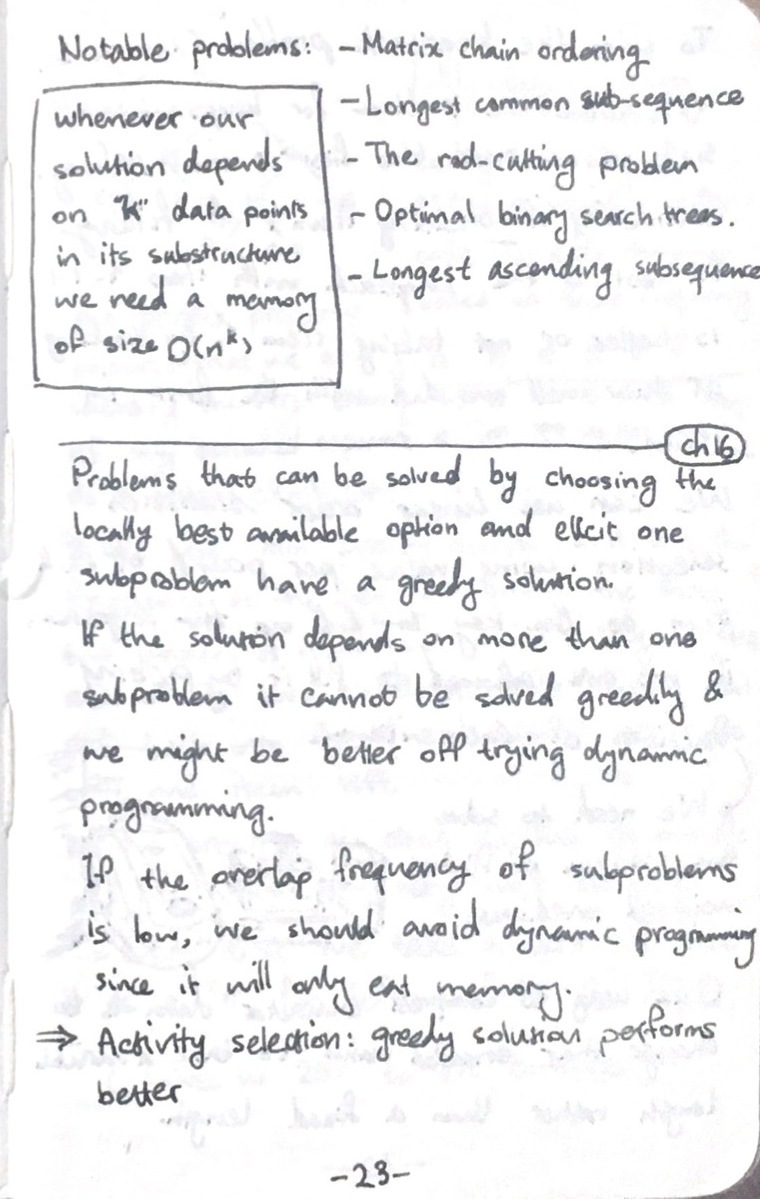 Notable problems: - Matrix chain ordering
- Longest common sub-sequence
- The rod-cutting problem
- Optimal binary search trees.
- Longest ascending subsequence
whenever our
solution depends
on "k" data points
in its substructure
we need a memory
of size O(n^k)
ch16
Problems that can be solved by choosing the
locally best available option and elicit one
subproblem have a greedy solution.
If the solution depends on more than one
subproblem it cannot be solved greedily &
we might be better off trying dynamic
programming.
If the overlap frequency of subproblems
is low, we should avoid dynamic programming
since it will only eat memory.
⇒ Activity selection: greedy solution performs
better
-23-